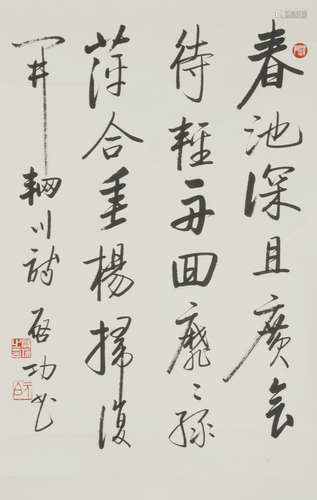 春池深且廣會
待輕舟回靡〻綠
萍合垂楊掃復
開 輞川詩 啟功書